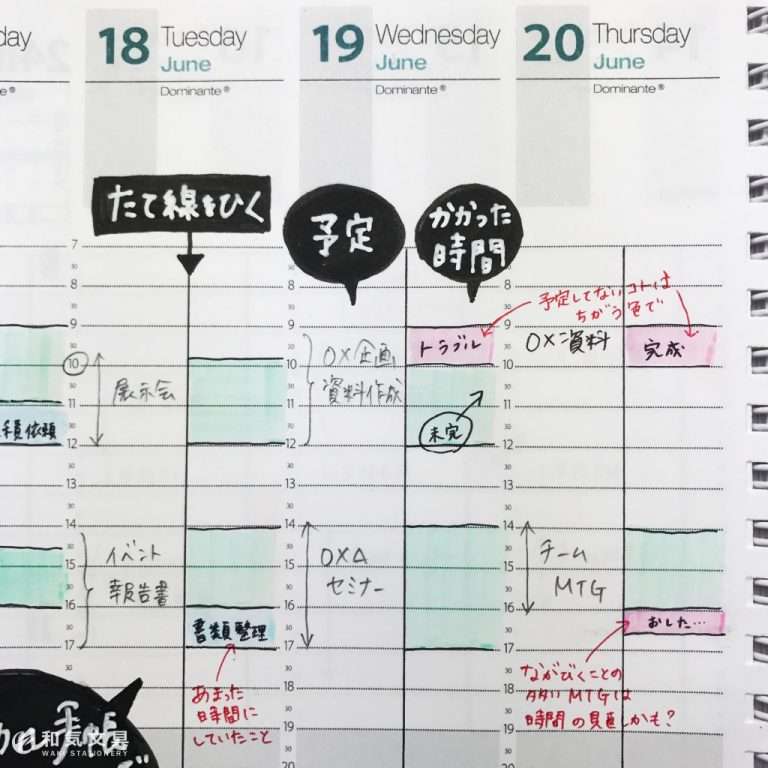 day
18 Tuesday
June
Dominante®
19 Wednesday
June
Dominante®
20 Thursday
June
Dominante®
たて線をひく
予定
かかった
時間
予定してないコトは
ちがう色で
7
8
9
10
11
12
13
14
15
16
17
18
19
20
21
積依頼
展示会
イベント
報告書
書類整理
あまった
時間に
していたこと
7
30
8
30
9
30
10
30
11
30
12
30
13
30
14
30
15
30
16
30
17
30
18
30
19
30
20
〇×企画
資料作成
トラブル
未完
〇×△
セミナー
〇×資料
完成
チーム
MTG
おした…
ながびくことの
多いMTGは
時間の見直しかも?
手帳
和気文具
WAKI STATIONERY